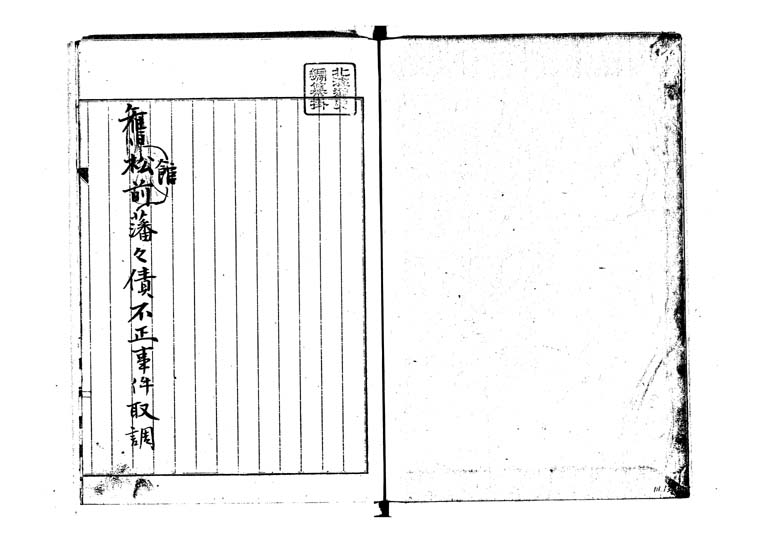 北海道史
編纂掛
舊松前藩々債不正事件取調
館